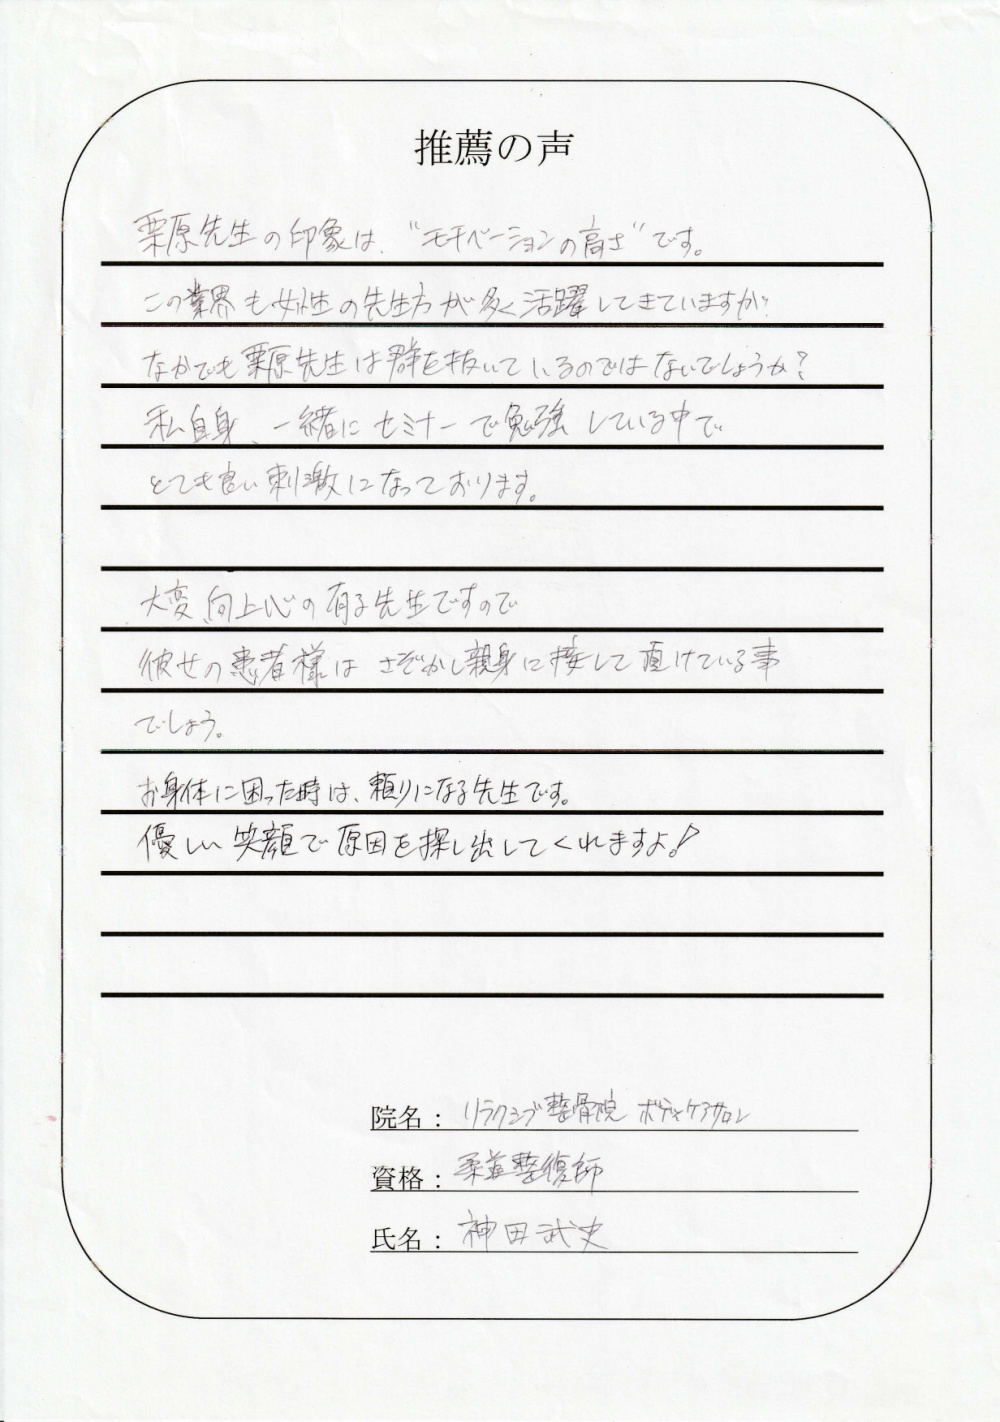 推薦の声
栗原先生の印象は、"モチベーションの高さ"です。
この業界も女性の先生方が多く活躍してきていますが
なかでも栗原先生は群を抜いているのではないでしょうか?
私自身、一緒にセミナーで勉強している中で
とても良い刺激になっております。
大変、向上心の有る先生ですので
彼女の患者様はさぞかし親身に接して頂けている事
でしょう。
お身体に困った時は、頼りになる先生です。
優しい笑顔で原因を探し出してくれますよ!
院名: リラクシブ整骨院 ボディケアサロン
資格: 柔道整復師
氏名: 神田武史